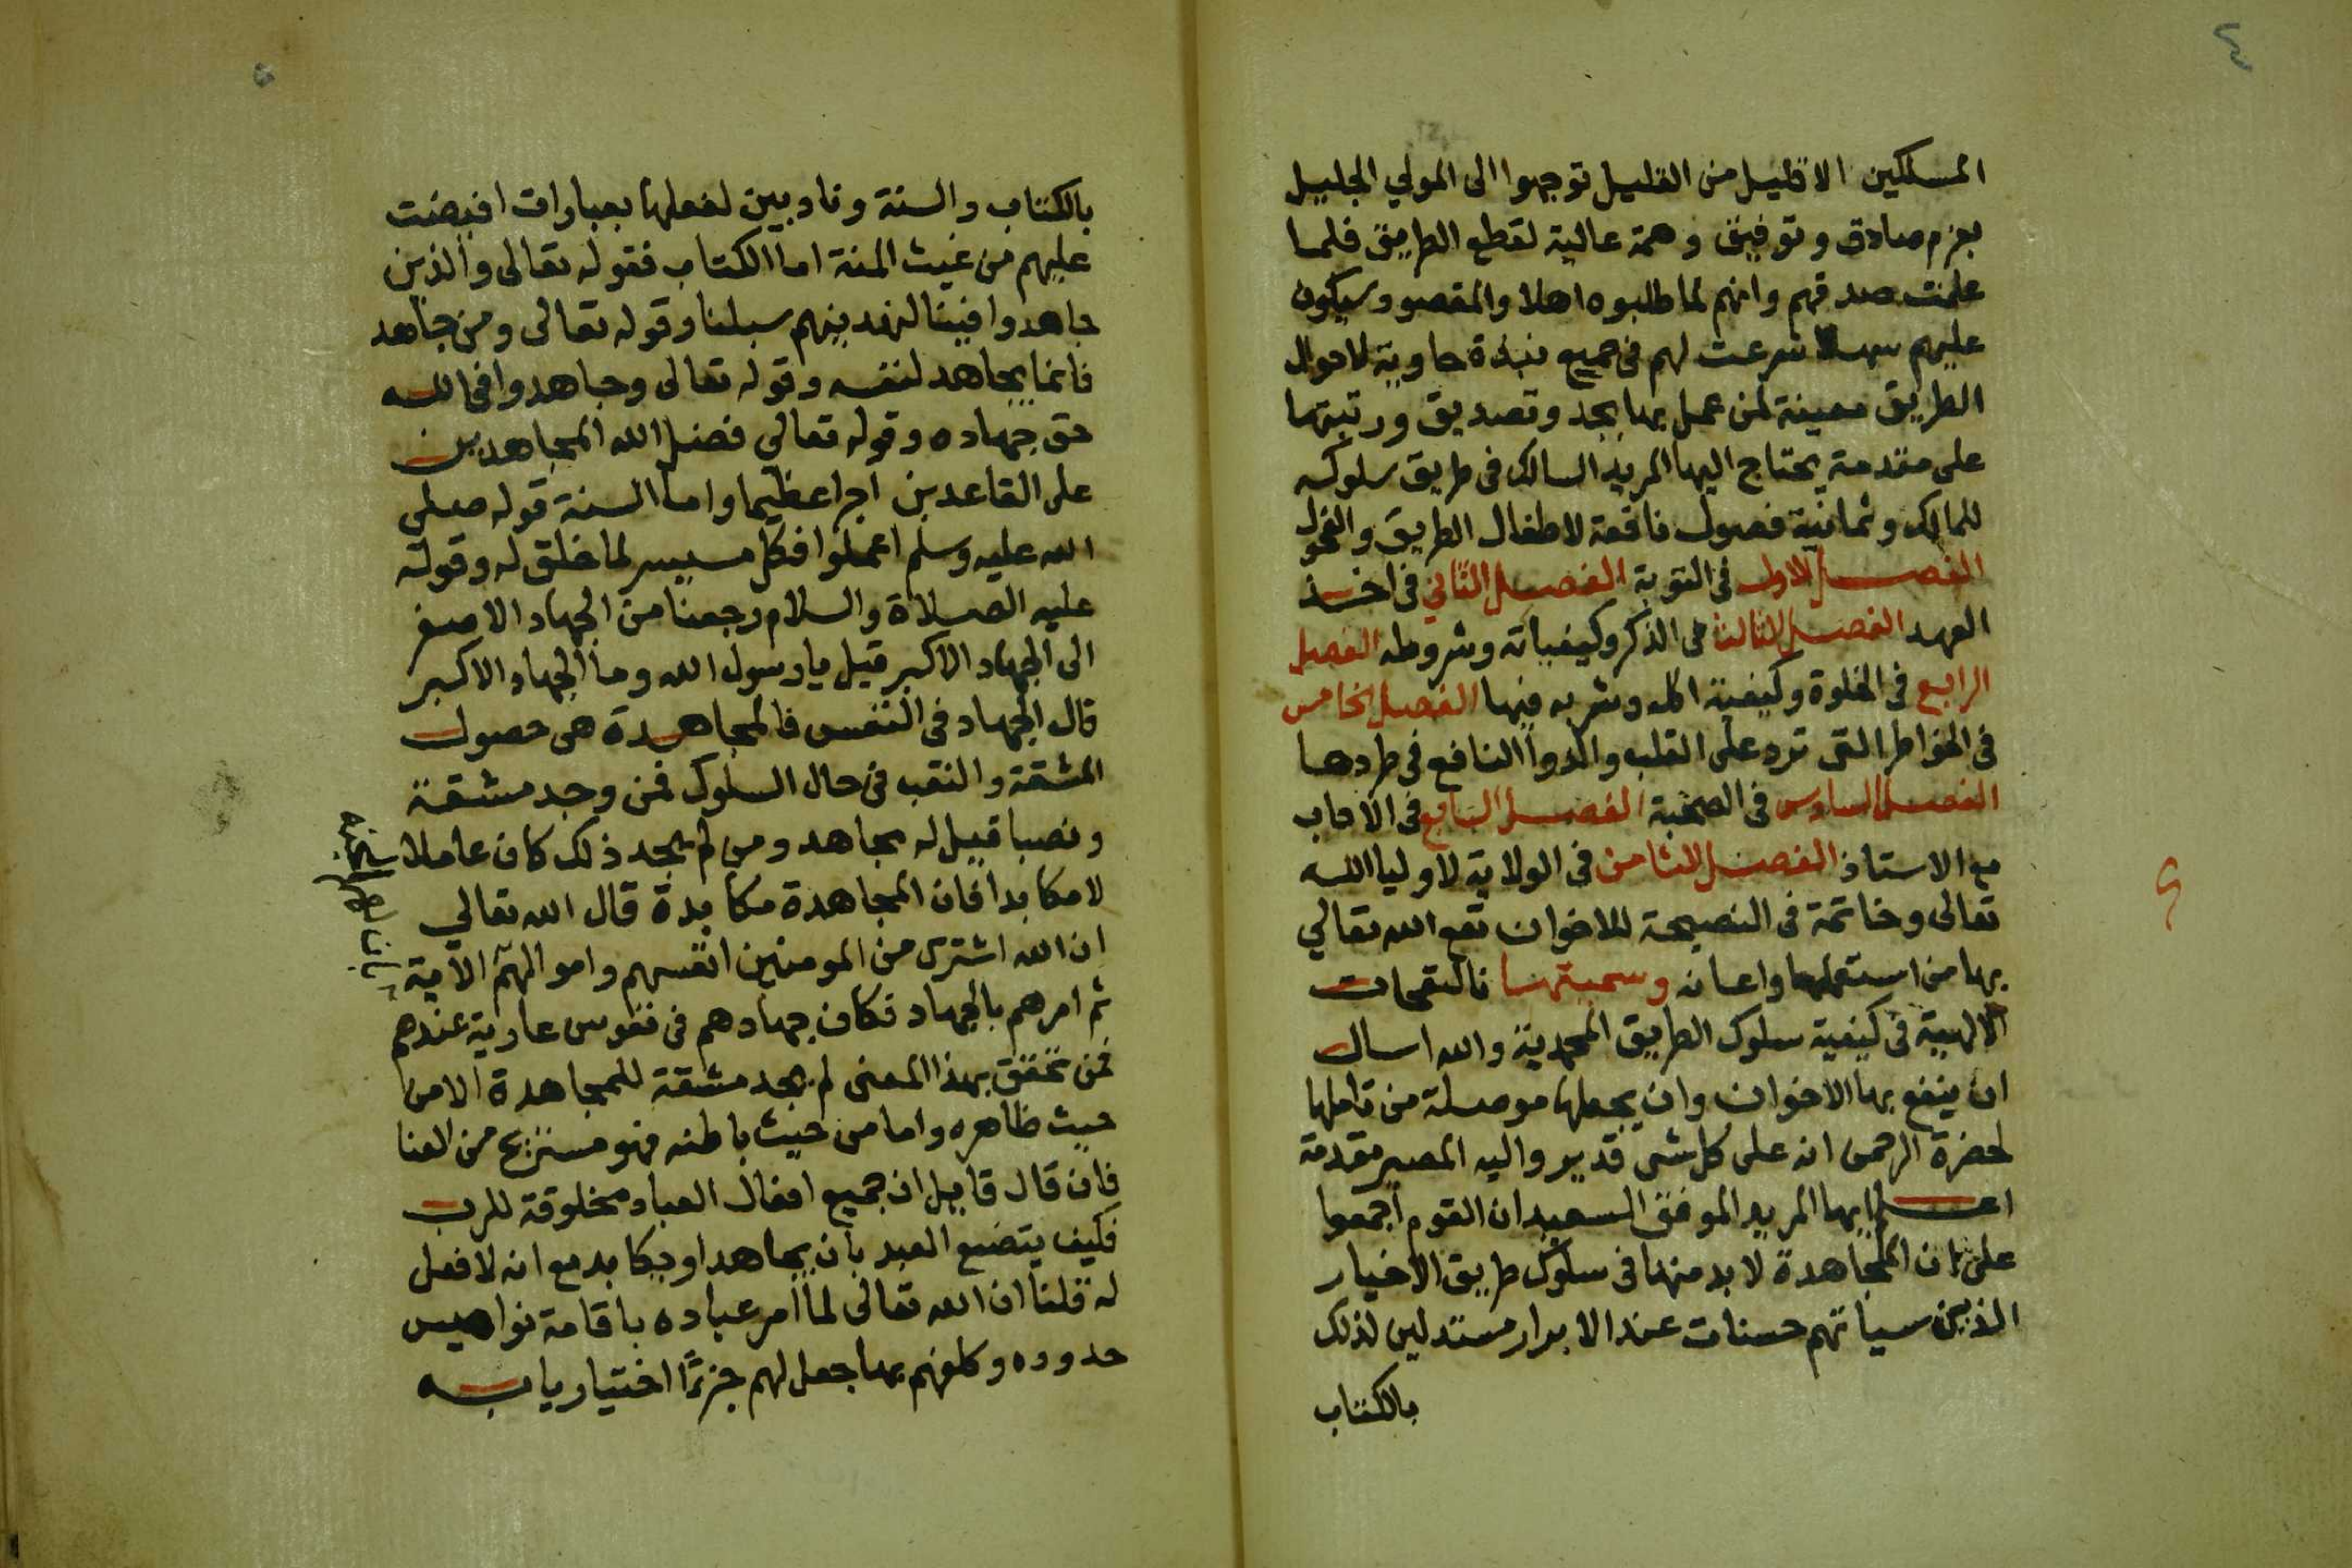 ٤
المسلكين الا قليل من القليل توجهوا الى المولي الجليل
بعزم صادق وتوفيق وهمة عالية لقطع الطريق فلما
علمت صدقهم وانهم لما طلبوه اهلا والمقصود سيكون
عليهم سهلا شرعت لهم في جميع نبذة حاوية لاحوال
الطريق معينة لمن عمل بها بجد وتصديق ورتبتها
على مقدمة يحتاج اليها المريد السالك في طريق سلوكه
للمالك وثمانية فصول نافعة لاطفال الطريق والفحول
الفصل الاول في التوبة الفصل الثاني في اخذ
العهد الفصل الثالث في الذكر وكيفياته وشروطه الفصل
الرابع في الخلوة وكيفية اكله وشربه فيها الفصل الخامس
في الخواطر التي ترد على القلب والدوا النافع في طردها
الفصل السادس في الصحبة الفصل السابع في الاداب
مع الاستاذ الفصل الثامن في الولاية لاوليا الله
تعالى وخاتمة في النصيحة للاخوان نفع الله تعالي
بها من استعملها واعانه وسميتها بالنفحات
الالهية في كيفية سلوك الطريق المحمدية والله اسال
ان ينفع بها الاخوان وان يجعلها موصلة من تاملها
لحضرة الرحمن انه على كل شى قدير واليه المصير مقدمة
اعلم ايها المريد الموفق السعيد ان القوم اجمعوا
على ان المجاهدة لا بد منها في سلوك طريق الاخيار
الذين سياتهم حسنات عند الابرار مستدلين لذلك
بالكتاب
٥
بالكتاب والسنة ونادبين لفعلها بعبارات افيضت
عليهم من غيث المنة اما الكتاب فقوله تعالى والذين
جاهدوا فينا لنهدينهم سبلنا وقوله تعالى ومن جاهد
فانما يجاهد لنفسه وقوله تعالى وجاهدوا في الله
حق جهاده وقوله تعالي فضل الله المجاهدين
على القاعدين اجرا عظيما واما السنة قوله صلى
الله عليه وسلم اعملوا فكل ميسر لما خلق له وقوله
عليه الصلاة والسلام رجعنا من الجهاد الاصغر
الى الجهاد الاكبر قيل يا رسول الله وما الجهاد الاكبر
قال الجهاد في النفس فالمجاهدة هى حصول
المشقة والتعب في حال السلوك فمن وجد مشقة
ونصبا قيل له مجاهد ومن لم يجد ذلك كان عاملا
لا مكابدا فان المجاهدة مكابدة قال الله تعالي
ان الله اشترى من المومنين انفسهم واموالهم الاية
ثم امرهم بالجهاد فكان جهادهم في نفوس عارية عندهم
فمن تحقق بهذا المعنى لم يجد مشقة للمجاهدة الا من
حيث ظاهره واما من حيث باطنه فهو مستريح من العنا
فان قال قايل ان جميع افعال العباد مخلوقة للرب
فكيف يتضع العبد بان يجاهد او يكابد مع انه لا فعل
له قلنا ان الله تعالى لما امر عباده باقامة نواميس
حدوده وكلفهم بها جعل لهم جزءا اختياريا به